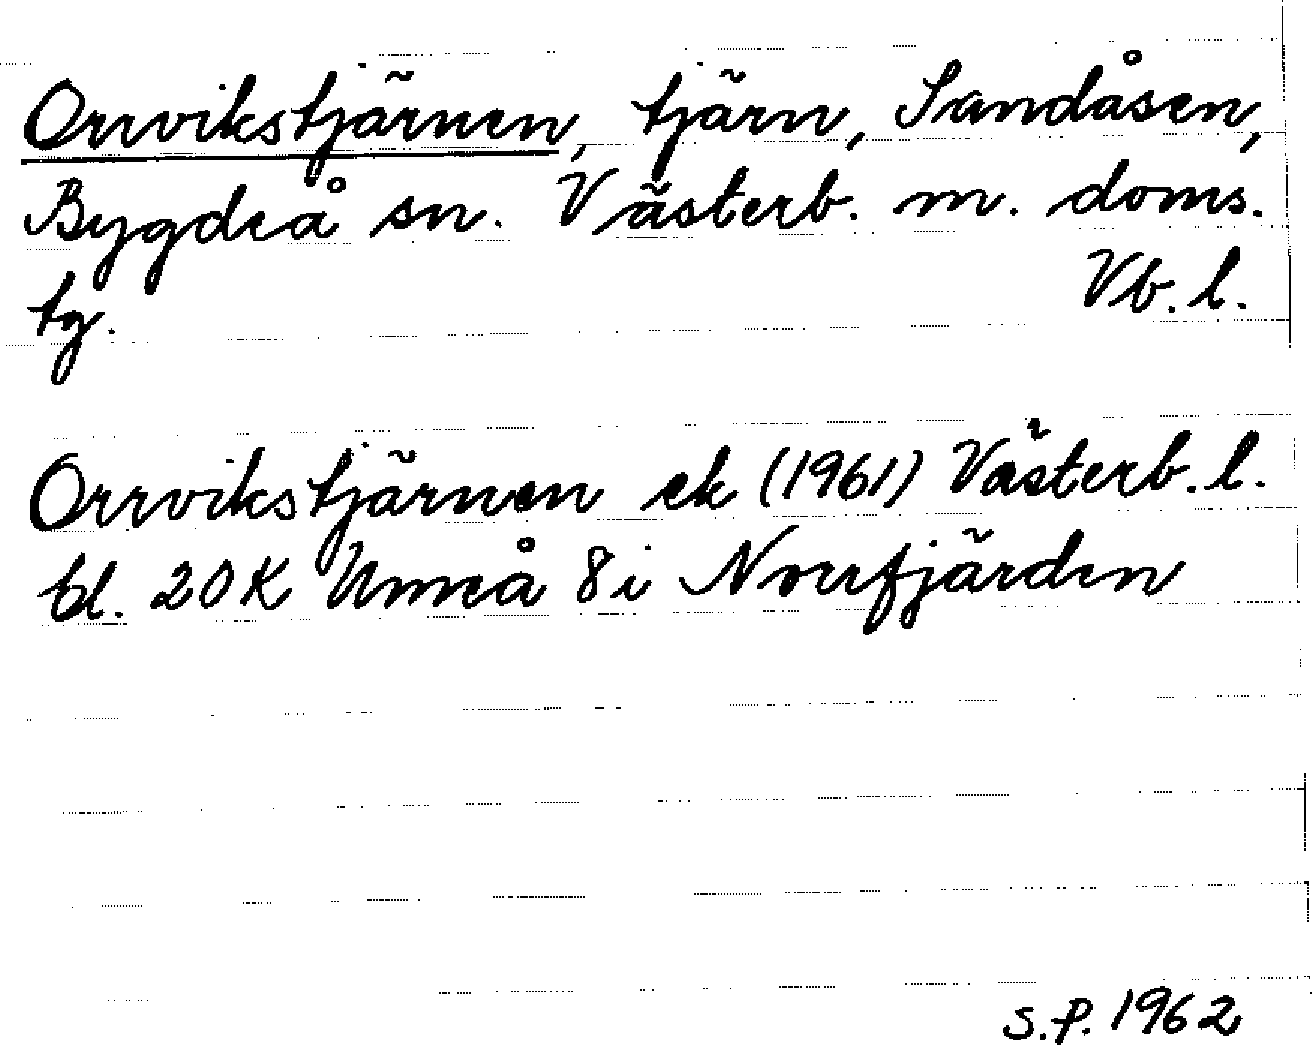 Orrvikstjärnen, tjärn, Sandåsen,
Bygdeå sn. Västerb. m. doms.
tg. Vb. l.
Orrvikstjärnen ek (1961) Västerb. l.
bl. 20K Umeå 8i Norrfjärden
S.P. 1962